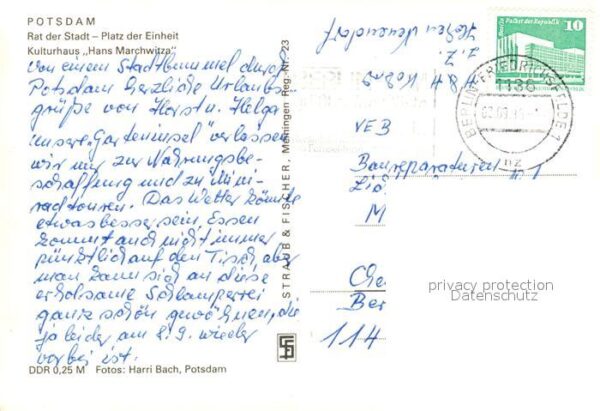 POTSDAM
Rat der Stadt – Platz der Einheit
Kulturhaus „Hans Marchwitza"
Von einem Stadtbummel durch
Potsdam herzliche Urlaubs-
grüße von Horst u. Helga
unsere „Garteninsel" verlassen
wir nur zur Nahrungsbe-
schaffung und zu Mini-
radtouren. Das Wetter könnte
etwas besser sein, Essen
kommt auch nicht immer
pünktlich auf den Tisch, aber
man kann sich an diese
erholsame Schlamperei
ganz schön gewöhnen, die
ja leider am 8.9. wieder
vorbei ist.
DDR 0,25 M Fotos: Harri Bach, Potsdam
STRAUB & FISCHER, Meiningen Reg.-Nr. 23
z.Z.
VEB
Baureparaturen
M
Ber
114
Berlin Palast der Republik
10
DDR
1136
nz
privacy protection
Datenschutz